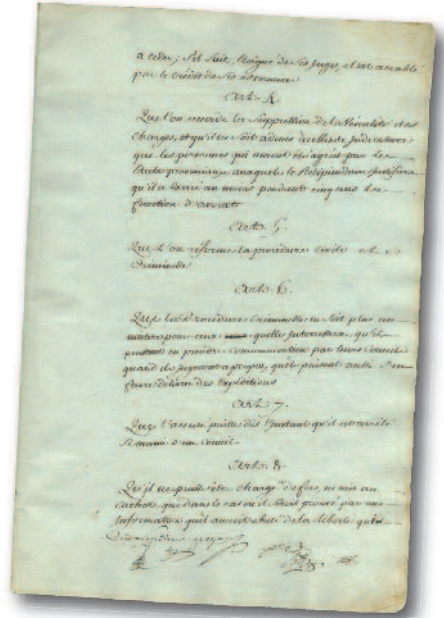 a ceder; s'il suit, éloigné de ses Juges, il est accablé
par le crédit de ses adversaires
Art. 4.
Que l'on accorde la Suppression de la Vénalité des
Charges, et qu'il ne soit admis à celles de Judicature
que les personnes qui auront été agréés par les
états provinciaux auxquels le Récipiendaire justifiera
qu'il a exercé au moins pendant cinq ans les
fonction d'avocat
Art. 5.
Que l'on réforme la procédure Civile et
Criminelle
Art. 6.
Que la Procédure Criminelle ne soit plus un
mistere pour ceux quelle Interesse, qu'ils
puissent en prendre communication par leurs Conseils
quand ils Jugeront apropos, qu'ils puissent aussi s'en
faire délivrer des Expéditions
Art. 7.
Que l'accusé puisse dès l'Instant qu'il est arrêté
Se munir d'un Conseil
Art. 8.
Qu'il ne puisse être chargé de fers, ni mis au
cachot, que dans le cas où il serait prouvé par une
Information qu'il auroit abusé de la liberté qu'on